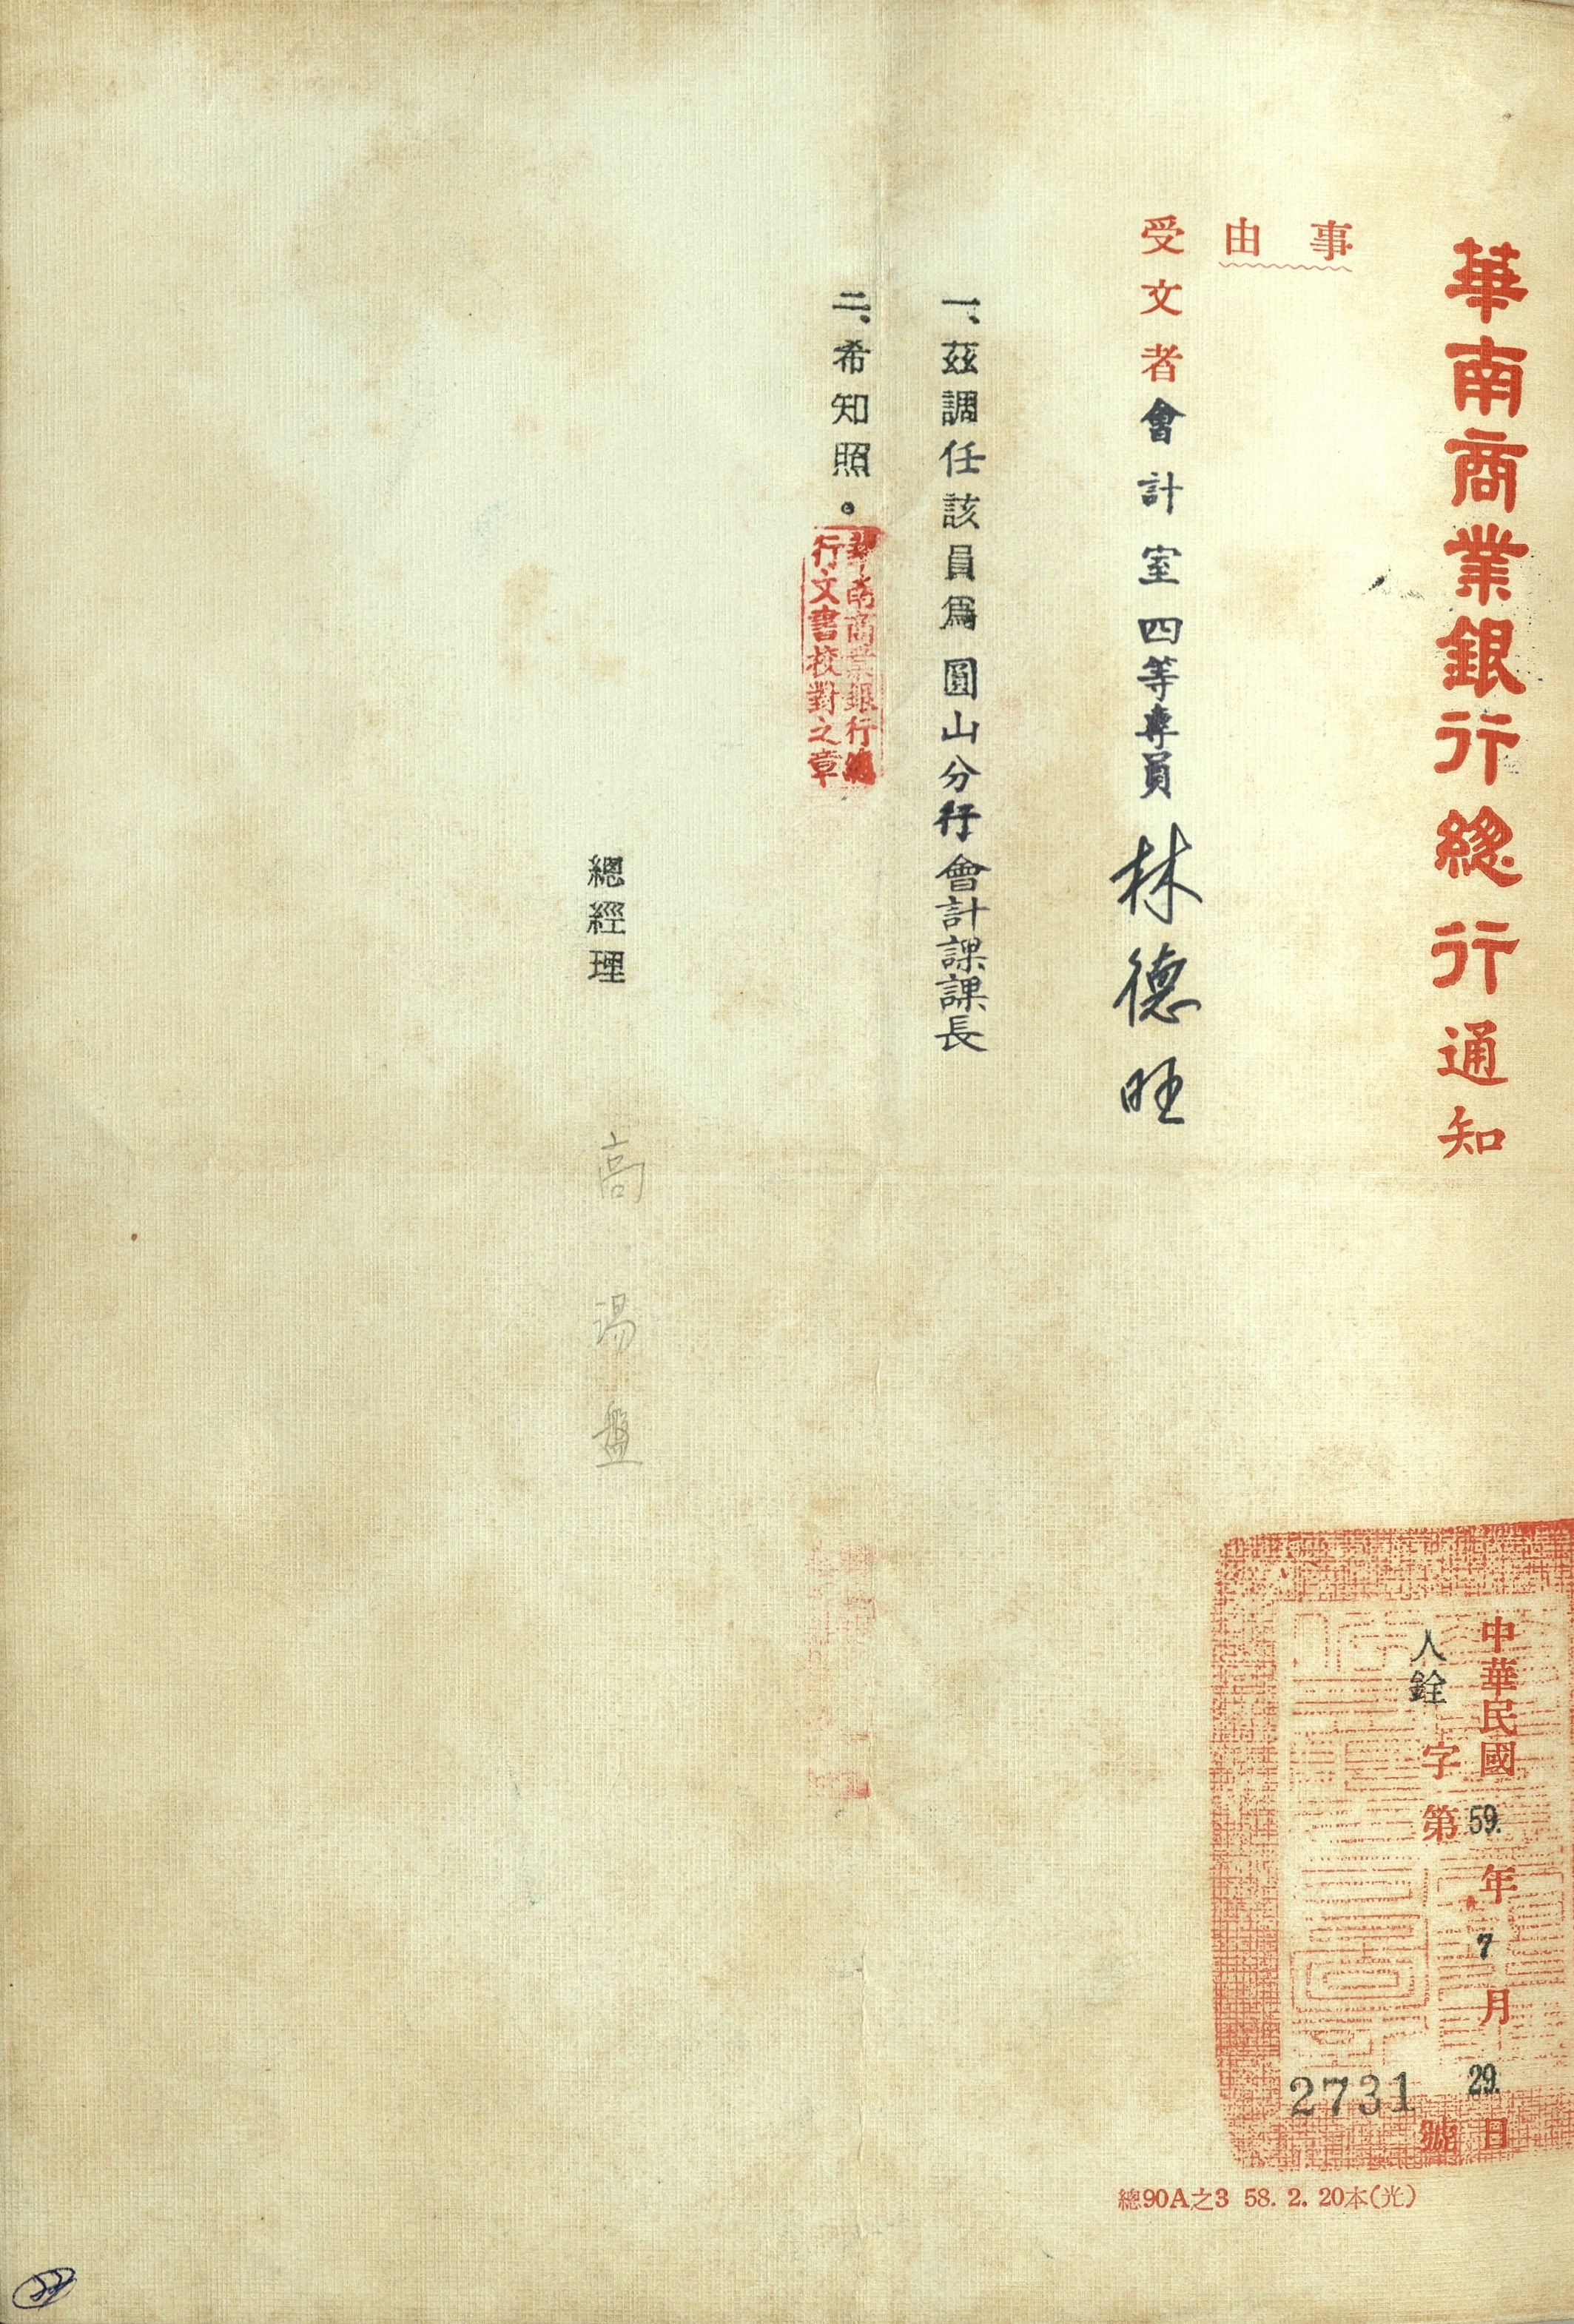 華南商業銀行總行通知
中華民國59.年7月29.日
人銓字第2731號
事由
受文者會計室四等專員林德旺
一、茲調任該員為圓山分行會計課課長
二、希知照。
華南商業銀行總
行文書校對之章
總經理 高湯盤
總90A之3 58. 2. 20本(光)